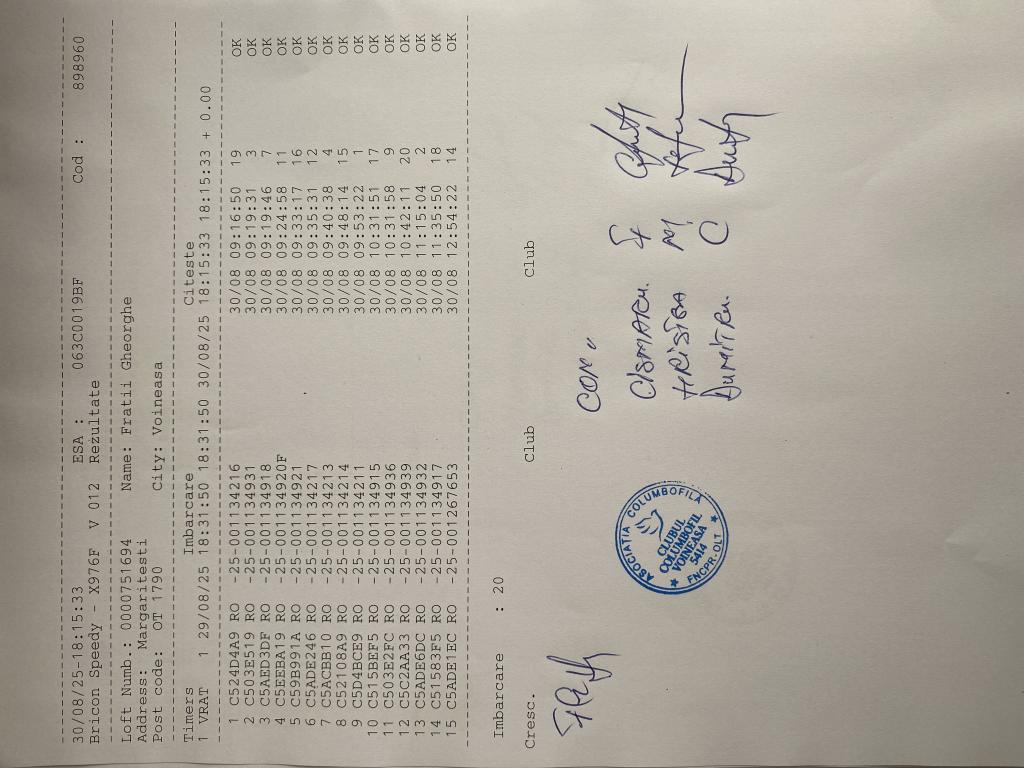 30/08/25-18:15:33 ESA : 063C0019BF Cod : 898960
Bricon Speedy - X976F V 012 Rezultate
Loft Numb.: 0000751694 Name: Fratii Gheorghe
Address: Margaritesti
Post code: OT 1790 City: Voineasa
Timers Imbarcare Citeste
1 VRAT 1 29/08/25 18:31:50 18:31:50 30/08/25 18:15:33 18:15:33 + 0.00
1 C524D4A9 RO -25-001134216 30/08 09:16:50 19 OK
2 C503E519 RO -25-001134931 30/08 09:19:31 3 OK
3 C5AED3DF RO -25-001134918 30/08 09:19:46 7 OK
4 C5EEBA19 RO -25-001134920F 30/08 09:24:58 11 OK
5 C59B991A RO -25-001134921 30/08 09:33:17 16 OK
6 C5ADE246 RO -25-001134217 30/08 09:35:31 12 OK
7 C5ACBB10 RO -25-001134213 30/08 09:40:38 4 OK
8 C52108A9 RO -25-001134214 30/08 09:48:14 15 OK
9 C5D4BCE9 RO -25-001134211 30/08 09:53:22 1 OK
10 C515BEF5 RO -25-001134915 30/08 10:31:51 17 OK
11 C503E2FC RO -25-001134936 30/08 10:31:58 9 OK
12 C5C2AA33 RO -25-001134939 30/08 10:42:11 20 OK
13 C5ADE6DC RO -25-001134932 30/08 11:15:04 2 OK
14 C51583F5 RO -25-001134917 30/08 11:35:50 18 OK
15 C5ADE1EC RO -25-001267653 30/08 12:54:22 14 OK
Imbarcare : 20
Cresc. Club Club
COM
CISMARU. F
HRISTEA M
DUMITRU. C
ASOCIATIA COLUMBOFILA
CLUBUL
COLUMBOFIL
VOINEASA
5414
FNCPR-OLT